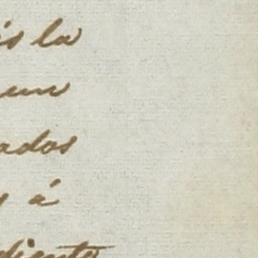 is la
un
ados
s á
diente